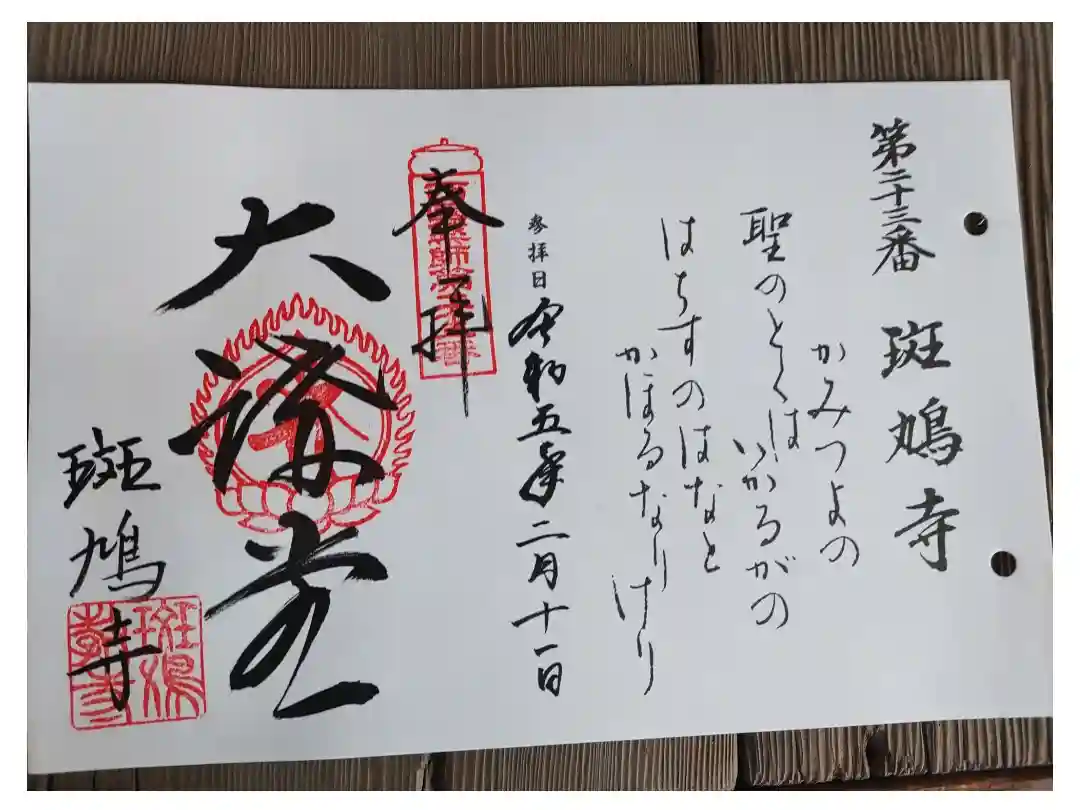 第二十三番 斑鳩寺
かみつよの
聖のとくはいかるがの
はちすのはなと
かほるなりけり
参拝日 令和五年二月十一日
奉拝
大講堂
斑鳩寺
斑鳩寺